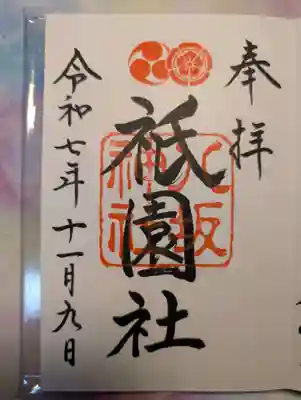 奉拝
祇園社
八坂神社
令和七年十一月九日